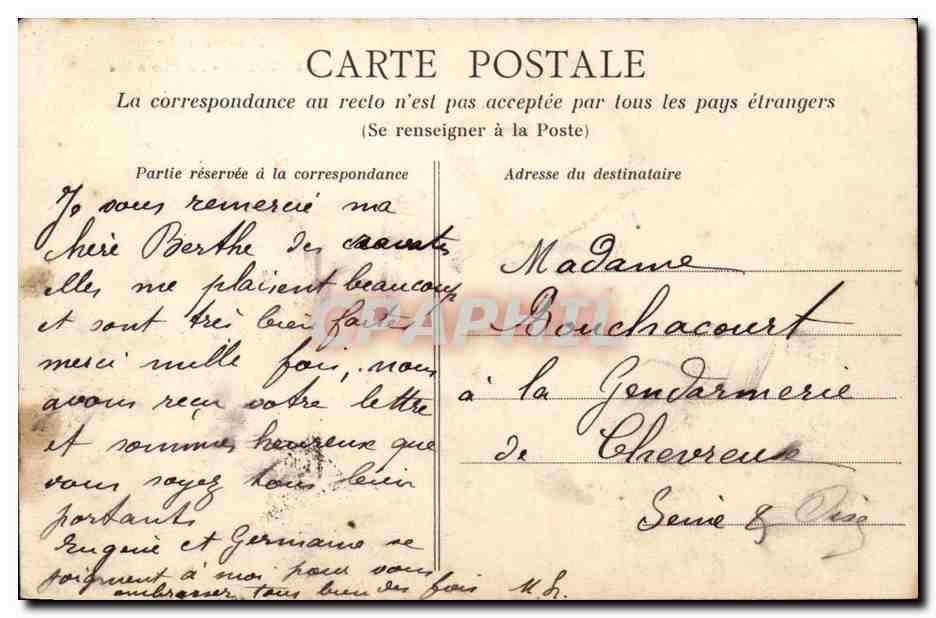 CARTE POSTALE
La correspondance au recto n'est pas acceptée par tous les pays étrangers
(Se renseigner à la Poste)
Partie réservée à la correspondance
Je vous remercie ma
chère Berthe des
elles me plaisent beaucoup
et sont très bien faites
merci mille fois, nous
avons reçu votre lettre
et sommes heureux que
vous soyez tous bien
portants
Eugénie et Germaine se
joignent à moi pour vous
embrasser tous bien des fois
Adresse du destinataire
Madame
Bouchacourt
à la Gendarmerie
de Chevreuse
Seine & Oise
CPAPHIL